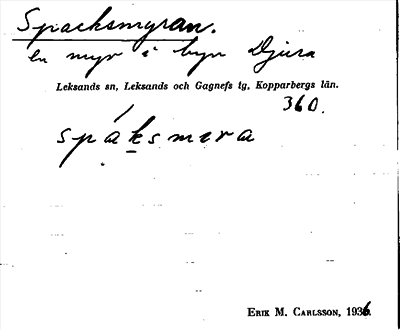 Spacksmyran.
en myr i byn Djura
Leksands sn, Leksands och Gagnefs tg, Kopparbergs län.
360.
spáksmera
ERIK M. CARLSSON, 1936.